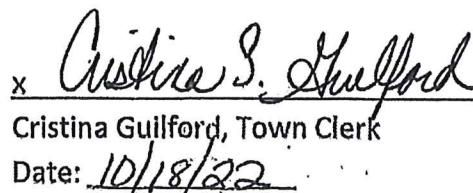 x Cristina S. Guilford
Cristina Guilford, Town Clerk
Date: 10/18/22